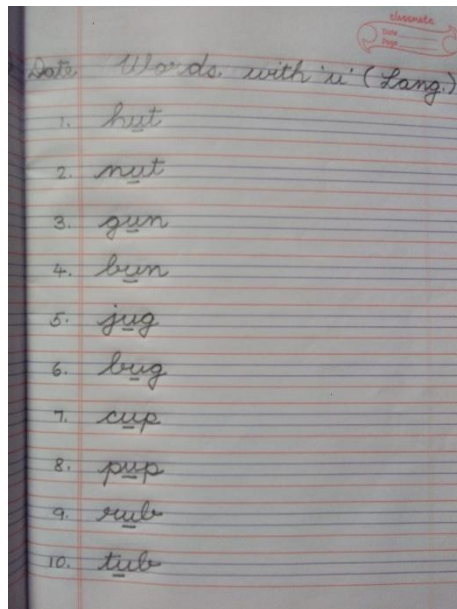 classmate
Date
Page
Date Words with 'u' (Lang.)
1. hut
2. nut
3. gun
4. bun
5. jug
6. bug
7. cup
8. pup
9. rub
10. tub